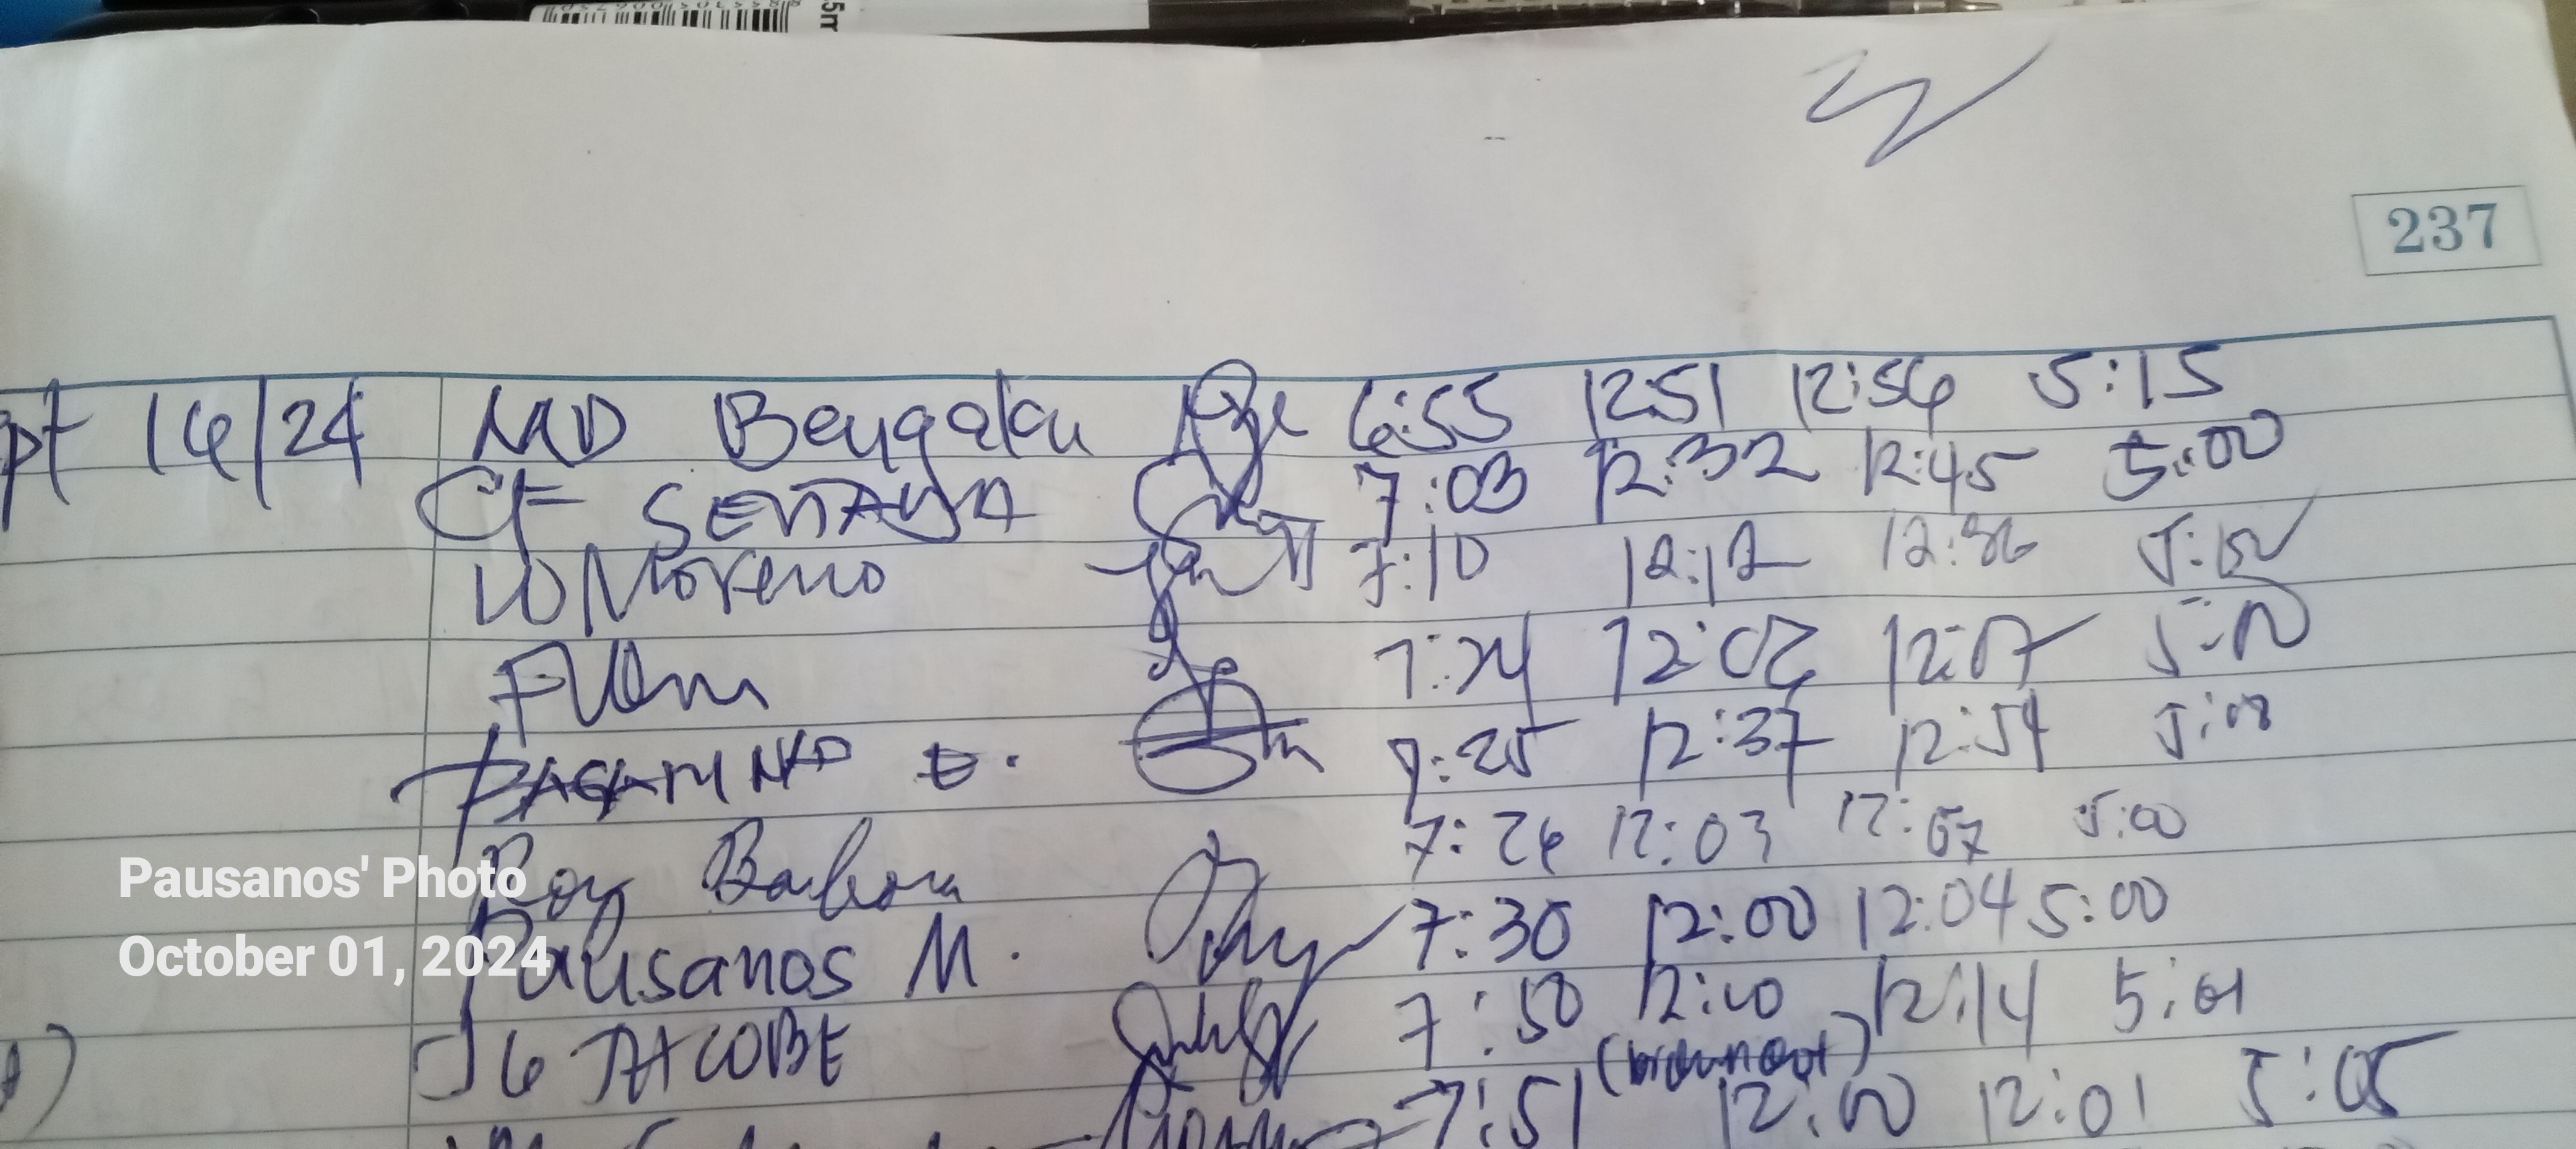 237
pt 16/24 MD Bengalan 6:55 12:51 12:56 5:15
CF SENTANA 7:03 12:32 12:45 5:00
WMoreno 7:10 12:12 12:36
7:24 12:02 12:07 5:00
PAGAMINAD E. 7:25 12:37 12:54 5:08
Roy Barbona 7:26 12:03 12:07 5:00
Pausanos M. 7:30 12:00 12:04 5:00
JG TACOBE 7:50 12:10 12:14 5:01
(brownout)
7:51 12:00 12:01 5:05
Pausanos' Photo
October 01, 2024